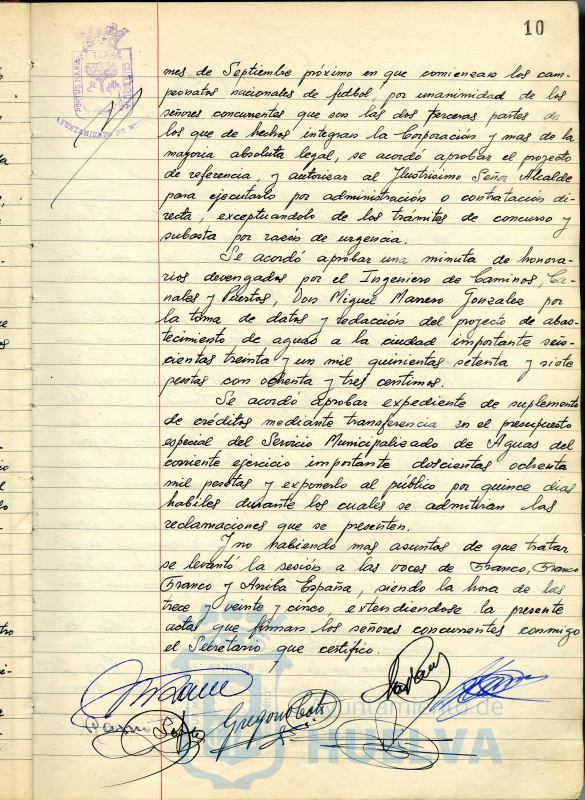 10
PORTUS MARIS
CUSTODIA
AYUNTAMIENTO DE
mes de Septiembre próximo en que comienzan los cam-
peonatos nacionales de futbol, por unanimidad de los
señores concurrentes que son las dos terceras partes de
los que de hechos integran la Corporación y mas de la
mayoria absoluta legal, se acordó aprobar el proyecto
de referencia, y autorizar al Ilustrisimo Señor Alcalde
para ejecutarlo por administración o contratación di-
recta, exceptuandolo de los trámites de concurso y
subasta por razón de urgencia.
Se acordó aprobar una minuta de honora-
rios devengados por el Ingeniero de Caminos, Ca-
nales y Puertos, Don Miguel Manero Gonzalez por
la toma de datos y redacción del proyecto de abas-
tecimiento de aguas a la ciudad importante seis-
cientas treinta y un mil quinientas setenta y siete
pesetas con ochenta y tres centimos.
Se acordó aprobar expediente de suplemento
de créditos mediante transferencia en el presupuesto
especial del Servicio Municipalizado de Aguas del
corriente ejercicio importante doscientas ochenta
mil pesetas y exponerlo al público por quince dias
habiles durante los cuales se admitiran las
reclamaciones que se presenten.
Y no habiendo mas asuntos de que tratar
se levantó la sesión a las voces de Franco, Franco
Franco y Arriba España, siendo la hora de las
trece y veinte y cinco, extendiendose la presente
acta que firman los señores concurrentes conmigo
el Secretario que certifico.
Gregorio
Ayuntamiento de
HUELVA